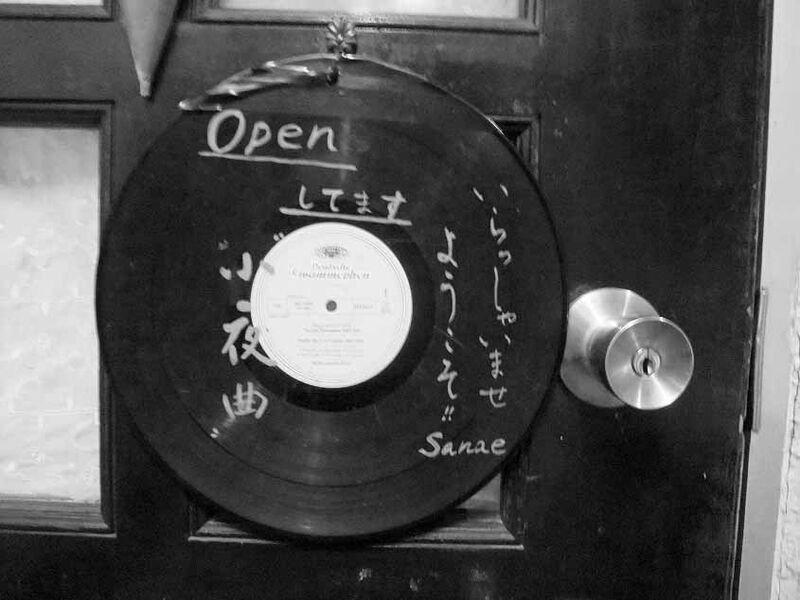 Open
してます
いらっしゃいませ
ようこそ!!
Sanae
"小夜曲"
Deutsche
Grammophon